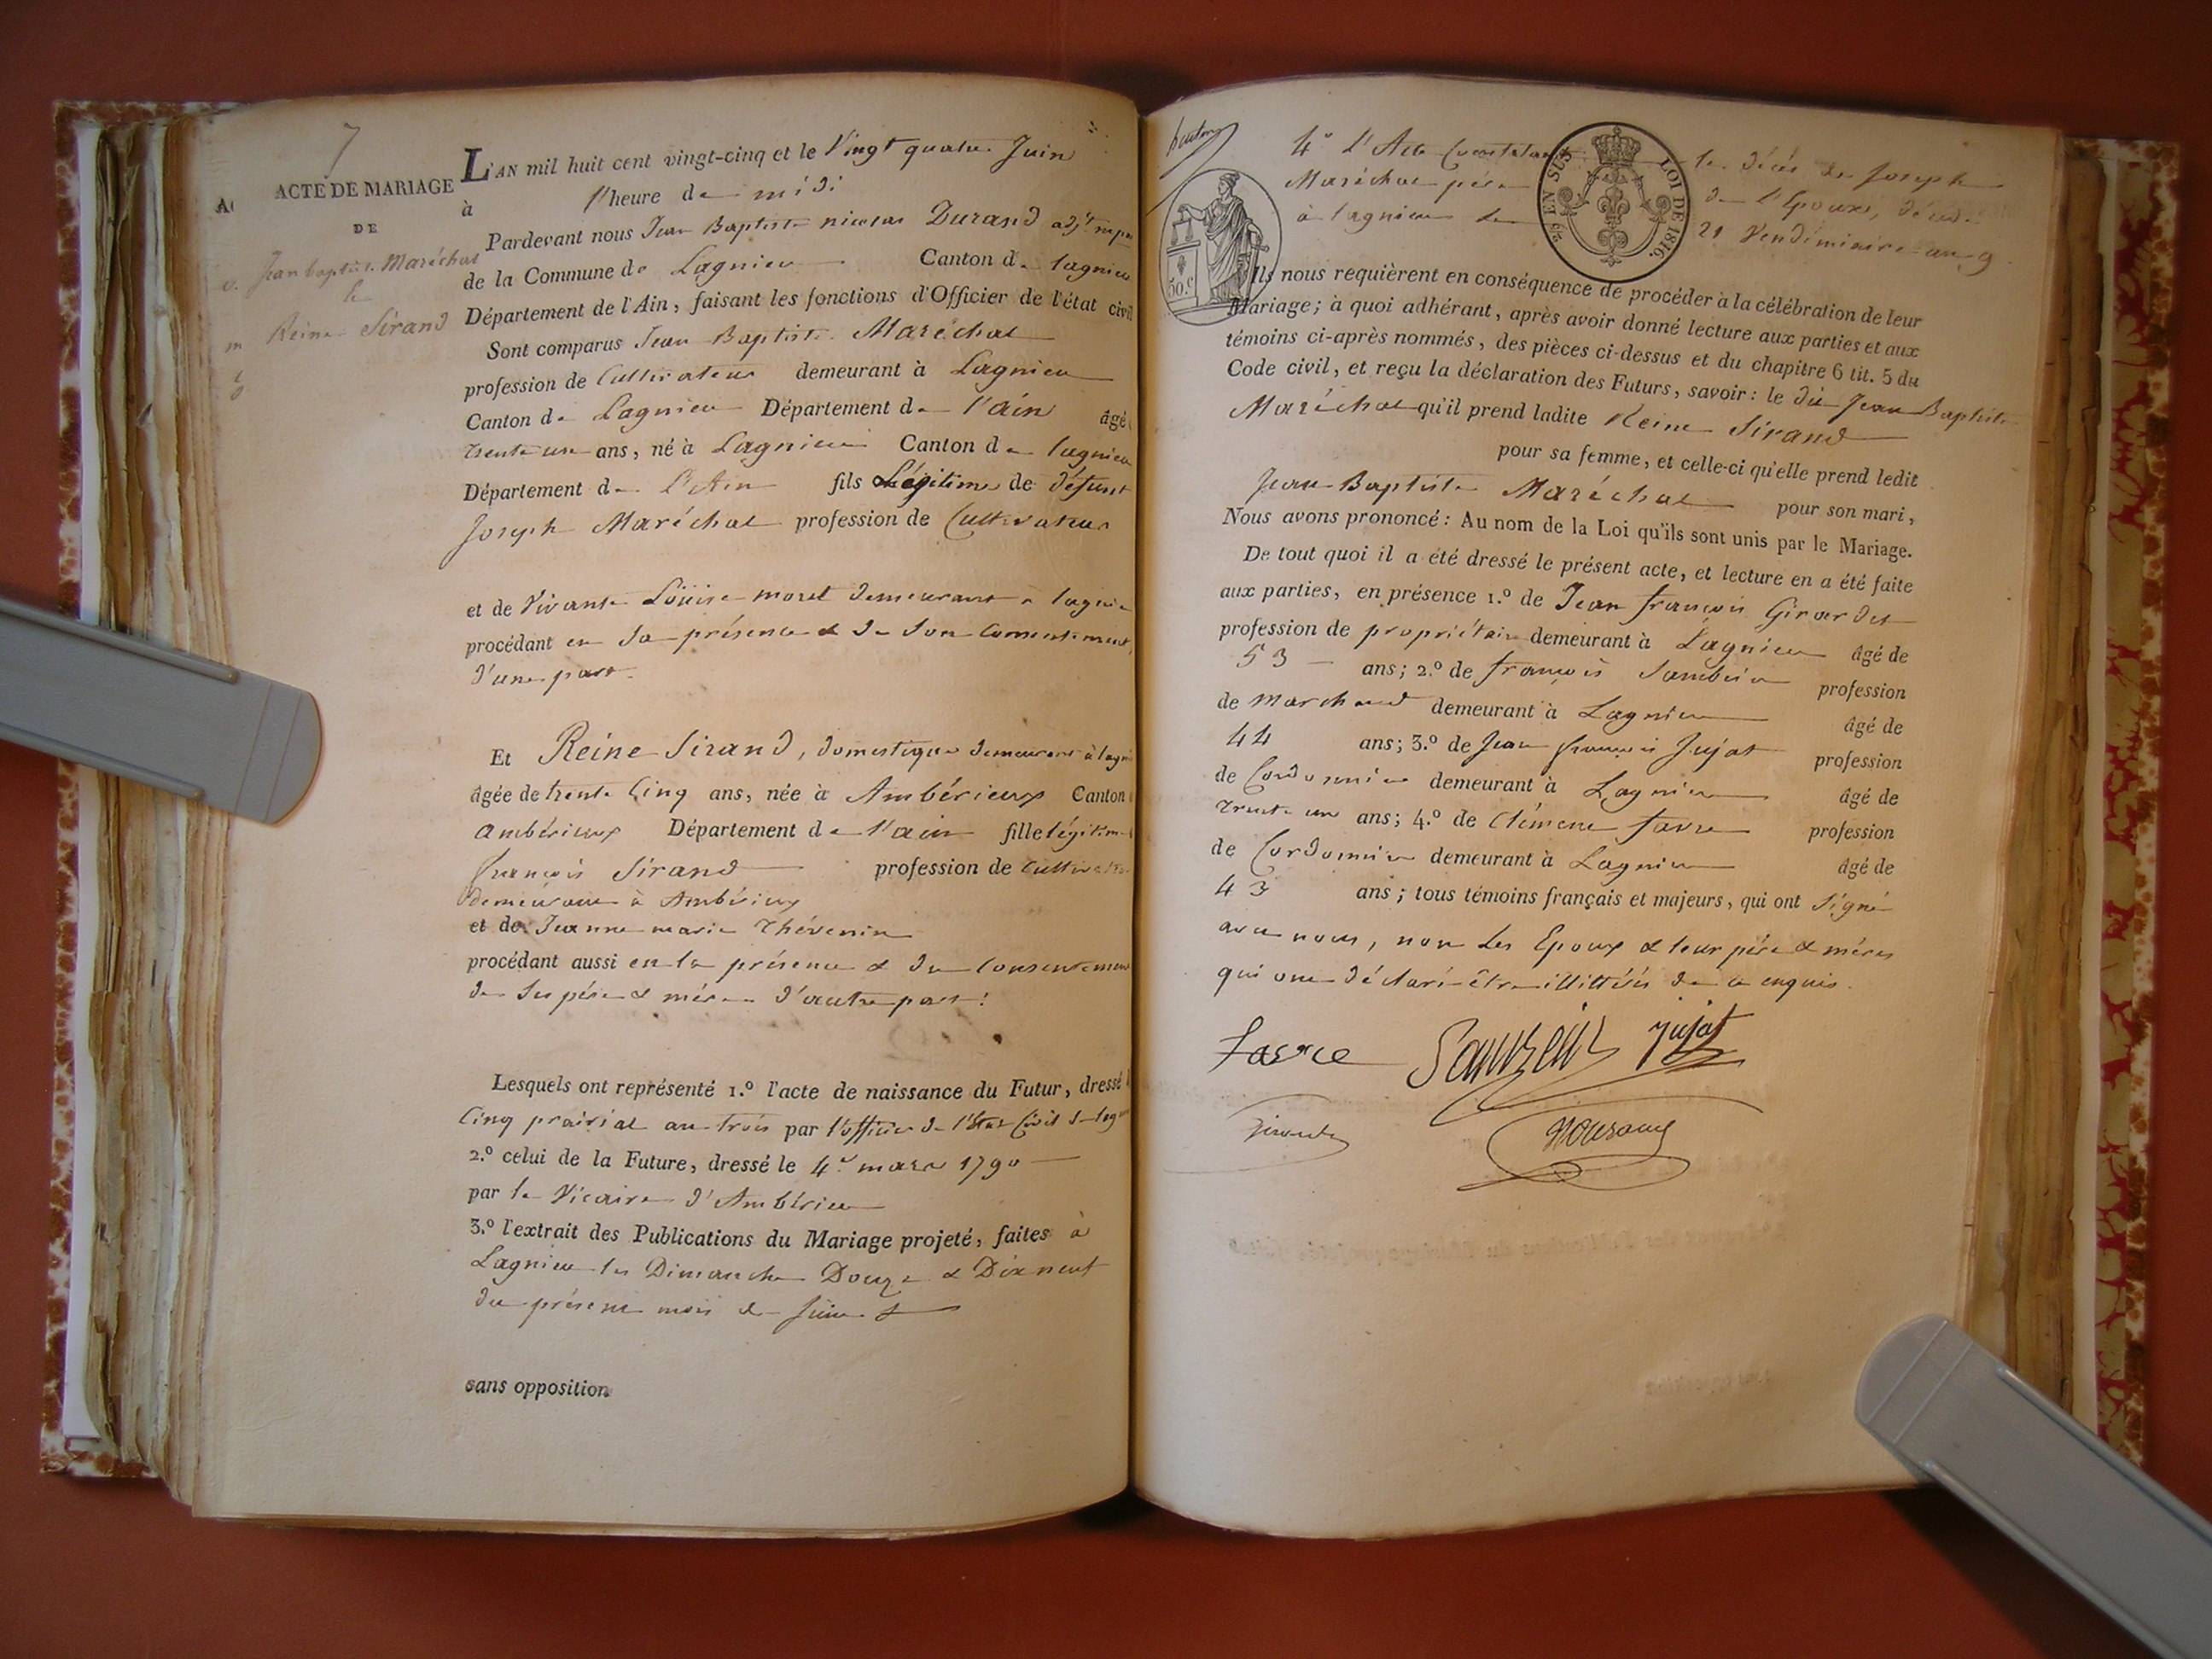 7
ACTE DE MARIAGE
DE
Jean baptiste Maréchal
&
Reine Sirand
L'AN mil huit cent vingt-cinq et le Vingt quatre Juin
à l'heure de midi
Pardevant nous Jean Baptiste nicolas Durand adj.t
de la Commune de Lagnieu Canton de lagnieu
Département de l'Ain, faisant les fonctions d'Officier de l'état civil
Sont comparus Jean Baptiste Maréchal
profession de Cultivateur demeurant à Lagnieu
Canton de Lagnieu Département de l'ain âgé
trente un ans, né à Lagnieu Canton de lagnieu
Département de l'Ain fils Légitime de défunt
Joseph Maréchal profession de Cultivateur
et de Vivante Louise morel demeurant à lagnie
procédant en sa présence & de son Consentement,
d'une part.
Et Reine Sirand, domestique demeurant à lagni
âgée de trente Cinq ans, née à Ambérieux Canton
ambérieux Département de l'ain fille légitime
françois Sirand profession de Cultivateur
demeurant à Ambérieux
et de Jeanne marie Thévenin
procédant aussi en la présence & du Consentement
de ses père & mère d'autre part.
Lesquels ont représenté 1.º l'acte de naissance du Futur, dressé l
Cinq prairial an trois par l'officier de l'État Civil de lagn
2.º celui de la Future, dressé le 4.e mars 1790
par le Vicaire d'Ambérieu
3.º l'extrait des Publications du Mariage projeté, faites à
Lagnieu les Dimanche Douze & Dixneuf
du présent mois de Juin
sans opposition
4º l'Acte Constatant le décès de Joseph
Maréchal père de l'Epoux, décédé
à lagnieu le 21 Vendémiaire an 9.
EN SUS LOI DE 1816.
50.c
Ils nous requièrent en conséquence de procéder à la célébration de leur
Mariage; à quoi adhérant, après avoir donné lecture aux parties et aux
témoins ci-après nommés, des pièces ci-dessus et du chapitre 6 tit. 5 du
Code civil, et reçu la déclaration des Futurs, savoir: le dit Jean Baptiste
Maréchal qu'il prend ladite Reine Sirand
pour sa femme, et celle-ci qu'elle prend ledit
Jean Baptiste Maréchal pour son mari,
Nous avons prononcé: Au nom de la Loi qu'ils sont unis par le Mariage.
De tout quoi il a été dressé le présent acte, et lecture en a été faite
aux parties, en présence 1.º de Jean françois Girardet
profession de propriétaire demeurant à Lagnieu âgé de
53 ans; 2.º de françois profession
de marchand demeurant à Lagnieu âgé de
44 ans; 3.º de Jean françois Jujat profession
de Cordonnier demeurant à Lagnieu âgé de
trente un ans; 4.º de Clément favre profession
de Cordonnier demeurant à Lagnieu âgé de
43 ans; tous témoins français et majeurs, qui ont signé
avec nous, non les Epoux & leur père & mères
qui ont déclaré être illittérés de ce enquis.
favre Jujat